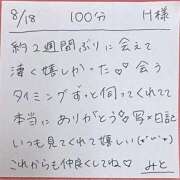 8/18 100分 H様
約2週間ぶりに会えて
凄く嬉しかった♡♡ 会う
タイミングずっと伺ってくれてて
本当にありがとう♡ 写メ日記
いつも見てくれて嬉しい(*ˊᵕˋ*)
これからも仲良くしてね♡ みと